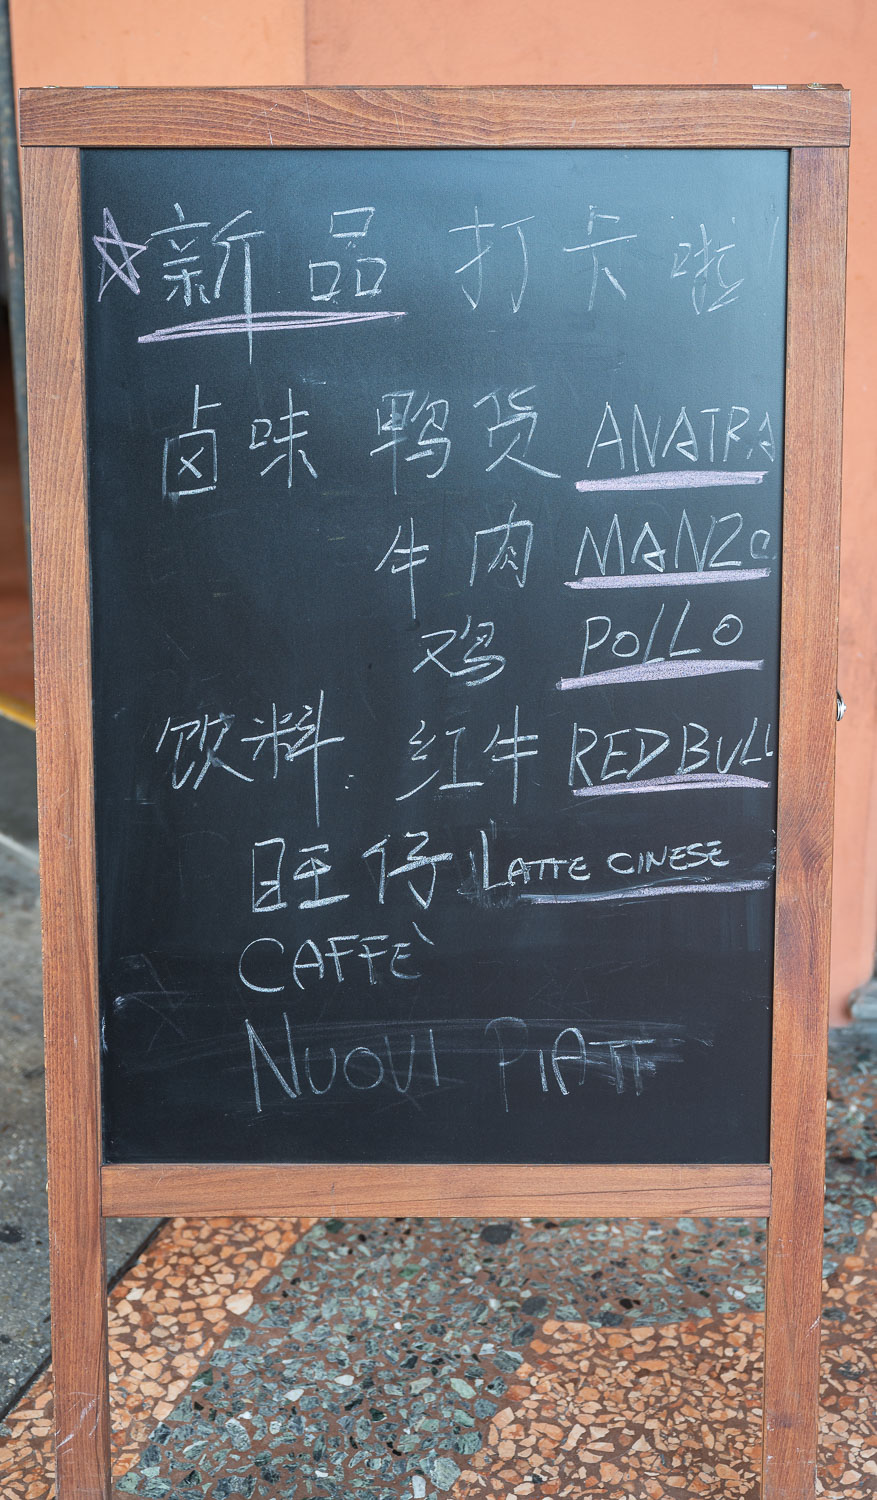 ☆新品打卡啦!
卤味 鸭货 ANATRA
牛肉 MANZO
鸡 POLLO
饮料: 红牛 RED BULL
旺仔 LATTE CINESE
CAFFÈ
NUOVI PIATTI